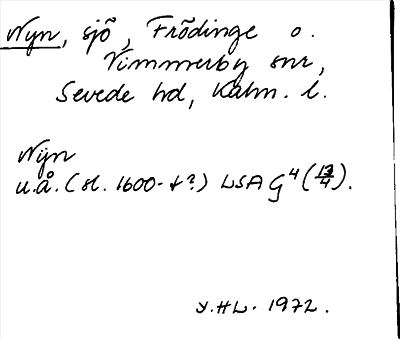 Nyn, sjö, Frödinge o.
Vimmerby snr,
Sevede hd, Kalm. l.
Nÿn
u.å. (sl. 1600-t?) LSA G4 (13/4).
Y.HL. 1972.